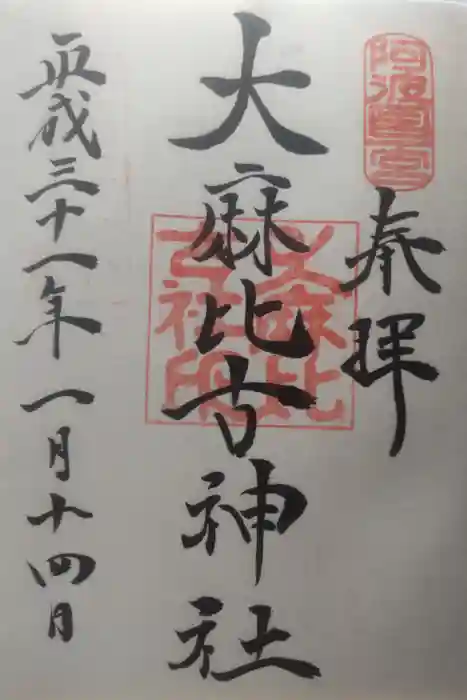 阿波國一宮
奉拝
大麻比古神社
大麻比古社印
平成三十一年一月十四日